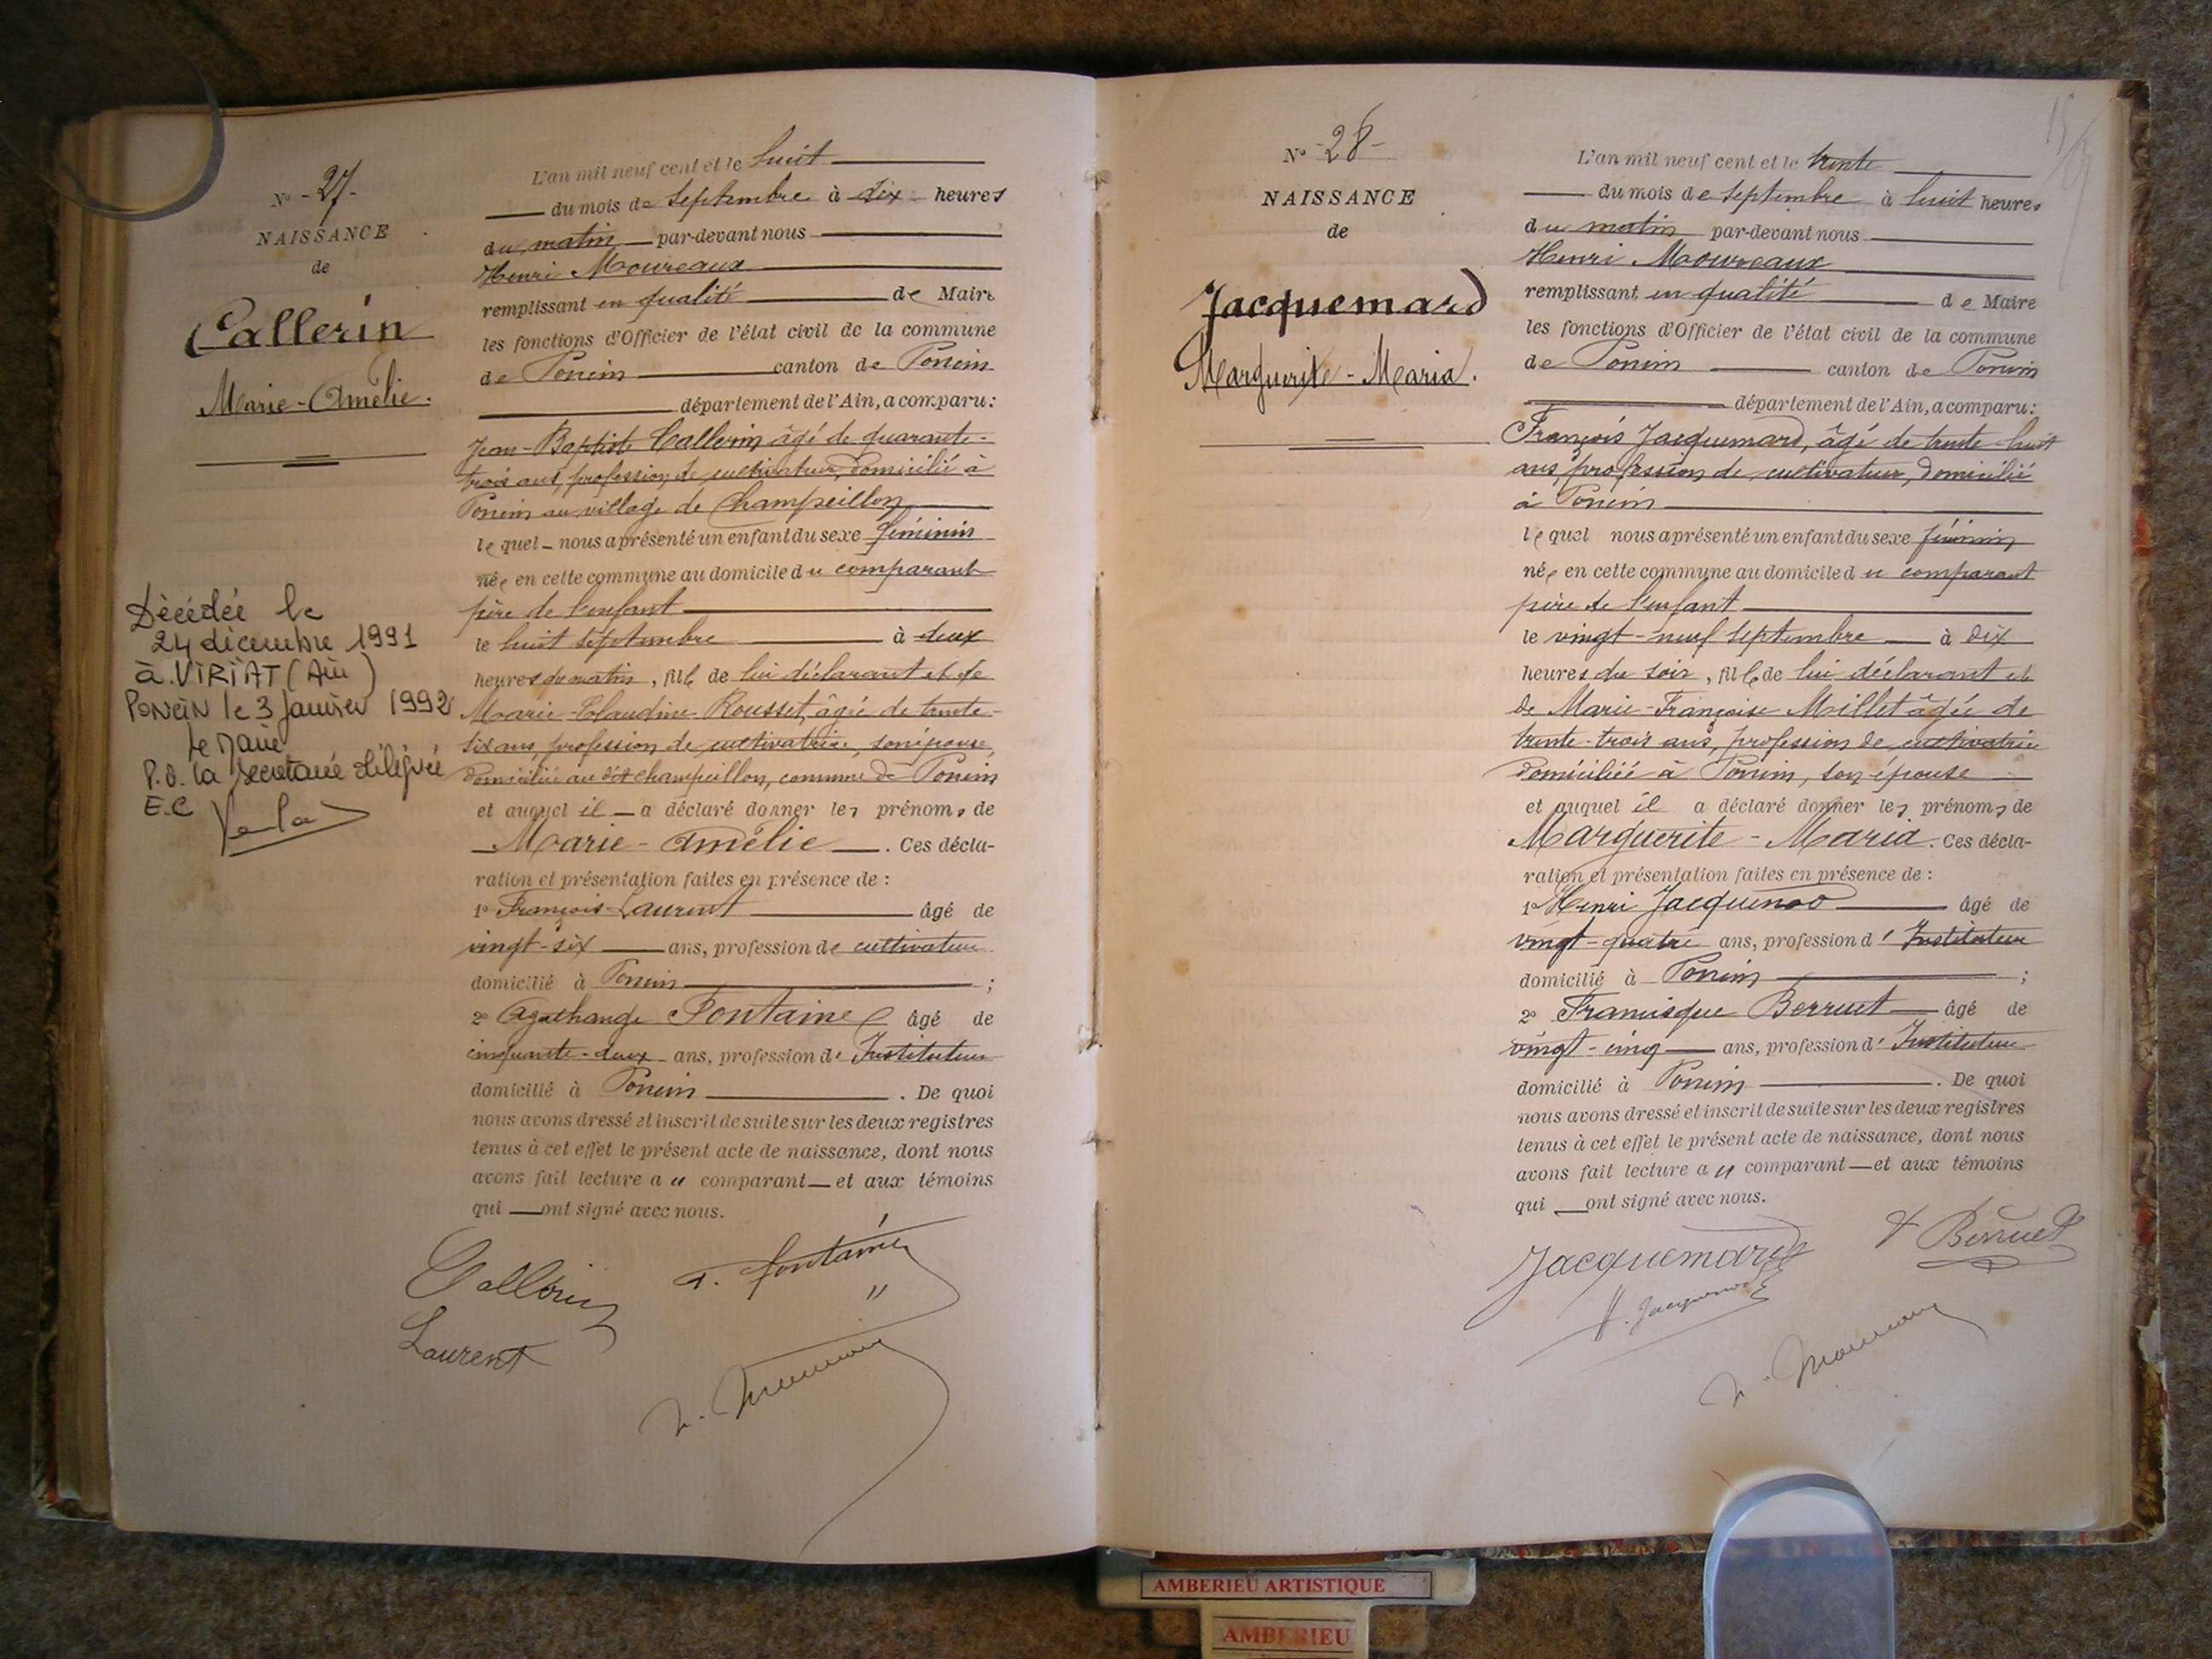 N° - 27 -
NAISSANCE
de
Callerin
Marie-Amélie.
Décédée le
24 décembre 1991
à VIRIAT (Ain)
Poncin le 3 Janvier 1992
Le Maire
P.O. la secrétaire déléguée
E.C
L'an mil neuf cent et le huit
du mois de Septembre à dix heures
du matin par-devant nous
Henri Moureaux
remplissant en qualité de Maire
les fonctions d'Officier de l'état civil de la commune
de Poncin canton de Poncin
département de l'Ain, a comparu:
Jean-Baptiste Callerin, âgé de quarante-
trois ans, profession de cultivateur, domicilié à
Poncin au village de Champeillon
le quel nous a présenté un enfant du sexe féminin
née en cette commune au domicile du comparant
père de l'enfant
le huit septembre à deux
heures du matin, fille de lui déclarant et de
Marie-Claudine Rousset, âgée de trente-
six ans, profession de cultivatrice, son épouse,
domiciliée au dit Champeillon, commune de Poncin
et auquel il a déclaré donner les prénoms de
Marie-Amélie. Ces décla-
ration et présentation faites en présence de :
1° François Laurent âgé de
vingt-six ans, profession de cultivateur
domicilié à Poncin ;
2° Agathange Fontaine âgé de
cinquante-deux ans, profession d'Instituteur
domicilié à Poncin. De quoi
nous avons dressé et inscrit de suite sur les deux registres
tenus à cet effet le présent acte de naissance, dont nous
avons fait lecture au comparant et aux témoins
qui ont signé avec nous.
Callerin
A. Fontaine
Laurent
N° - 28 -
NAISSANCE
de
Jacquemard
Marguerite-Maria.
L'an mil neuf cent et le trente
du mois de septembre à huit heures
du matin par-devant nous
Henri Moureaux
remplissant en qualité de Maire
les fonctions d'Officier de l'état civil de la commune
de Poncin canton de Poncin
département de l'Ain, a comparu:
François Jacquemard, âgé de trente-huit
ans, profession de cultivateur, domicilié
à Poncin
le quel nous a présenté un enfant du sexe féminin
née en cette commune au domicile du comparant
père de l'enfant
le vingt-neuf septembre à dix
heures du soir, fille de lui déclarant et
de Marie-Françoise Millet âgée de
trente-trois ans, profession de cultivatrice
domiciliée à Poncin, son épouse
et auquel il a déclaré donner les prénoms de
Marguerite-Maria. Ces décla-
ration et présentation faites en présence de :
1° Henri Jacquenod âgé de
vingt-quatre ans, profession d'Instituteur
domicilié à Poncin ;
2° Francisque Berruet âgé de
vingt-cinq ans, profession d'Instituteur
domicilié à Poncin. De quoi
nous avons dressé et inscrit de suite sur les deux registres
tenus à cet effet le présent acte de naissance, dont nous
avons fait lecture au comparant et aux témoins
qui ont signé avec nous.
Jacquemard
F Berruet
H. Jacquenod
AMBERIEU ARTISTIQUE
AMBERIEU